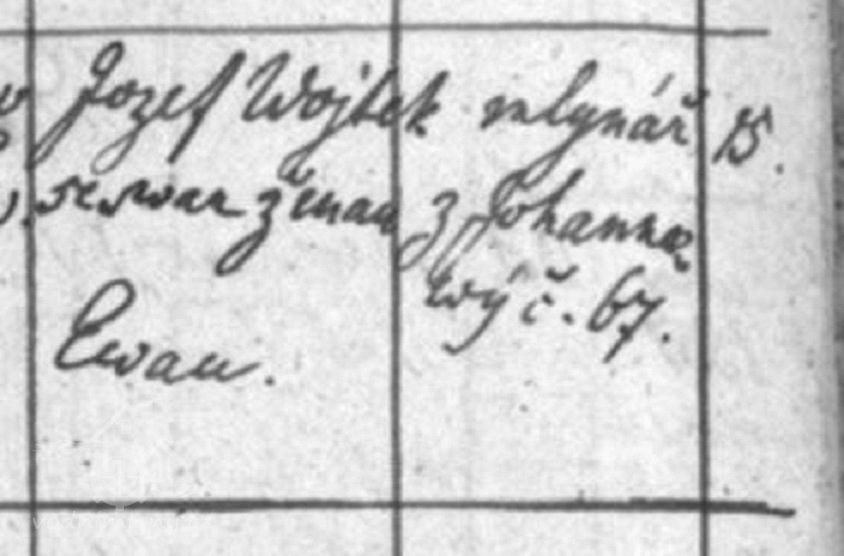 Jozef Wojtek mlynář 15.
se swau ženau z Johanno
Ewau. wý č. 67.